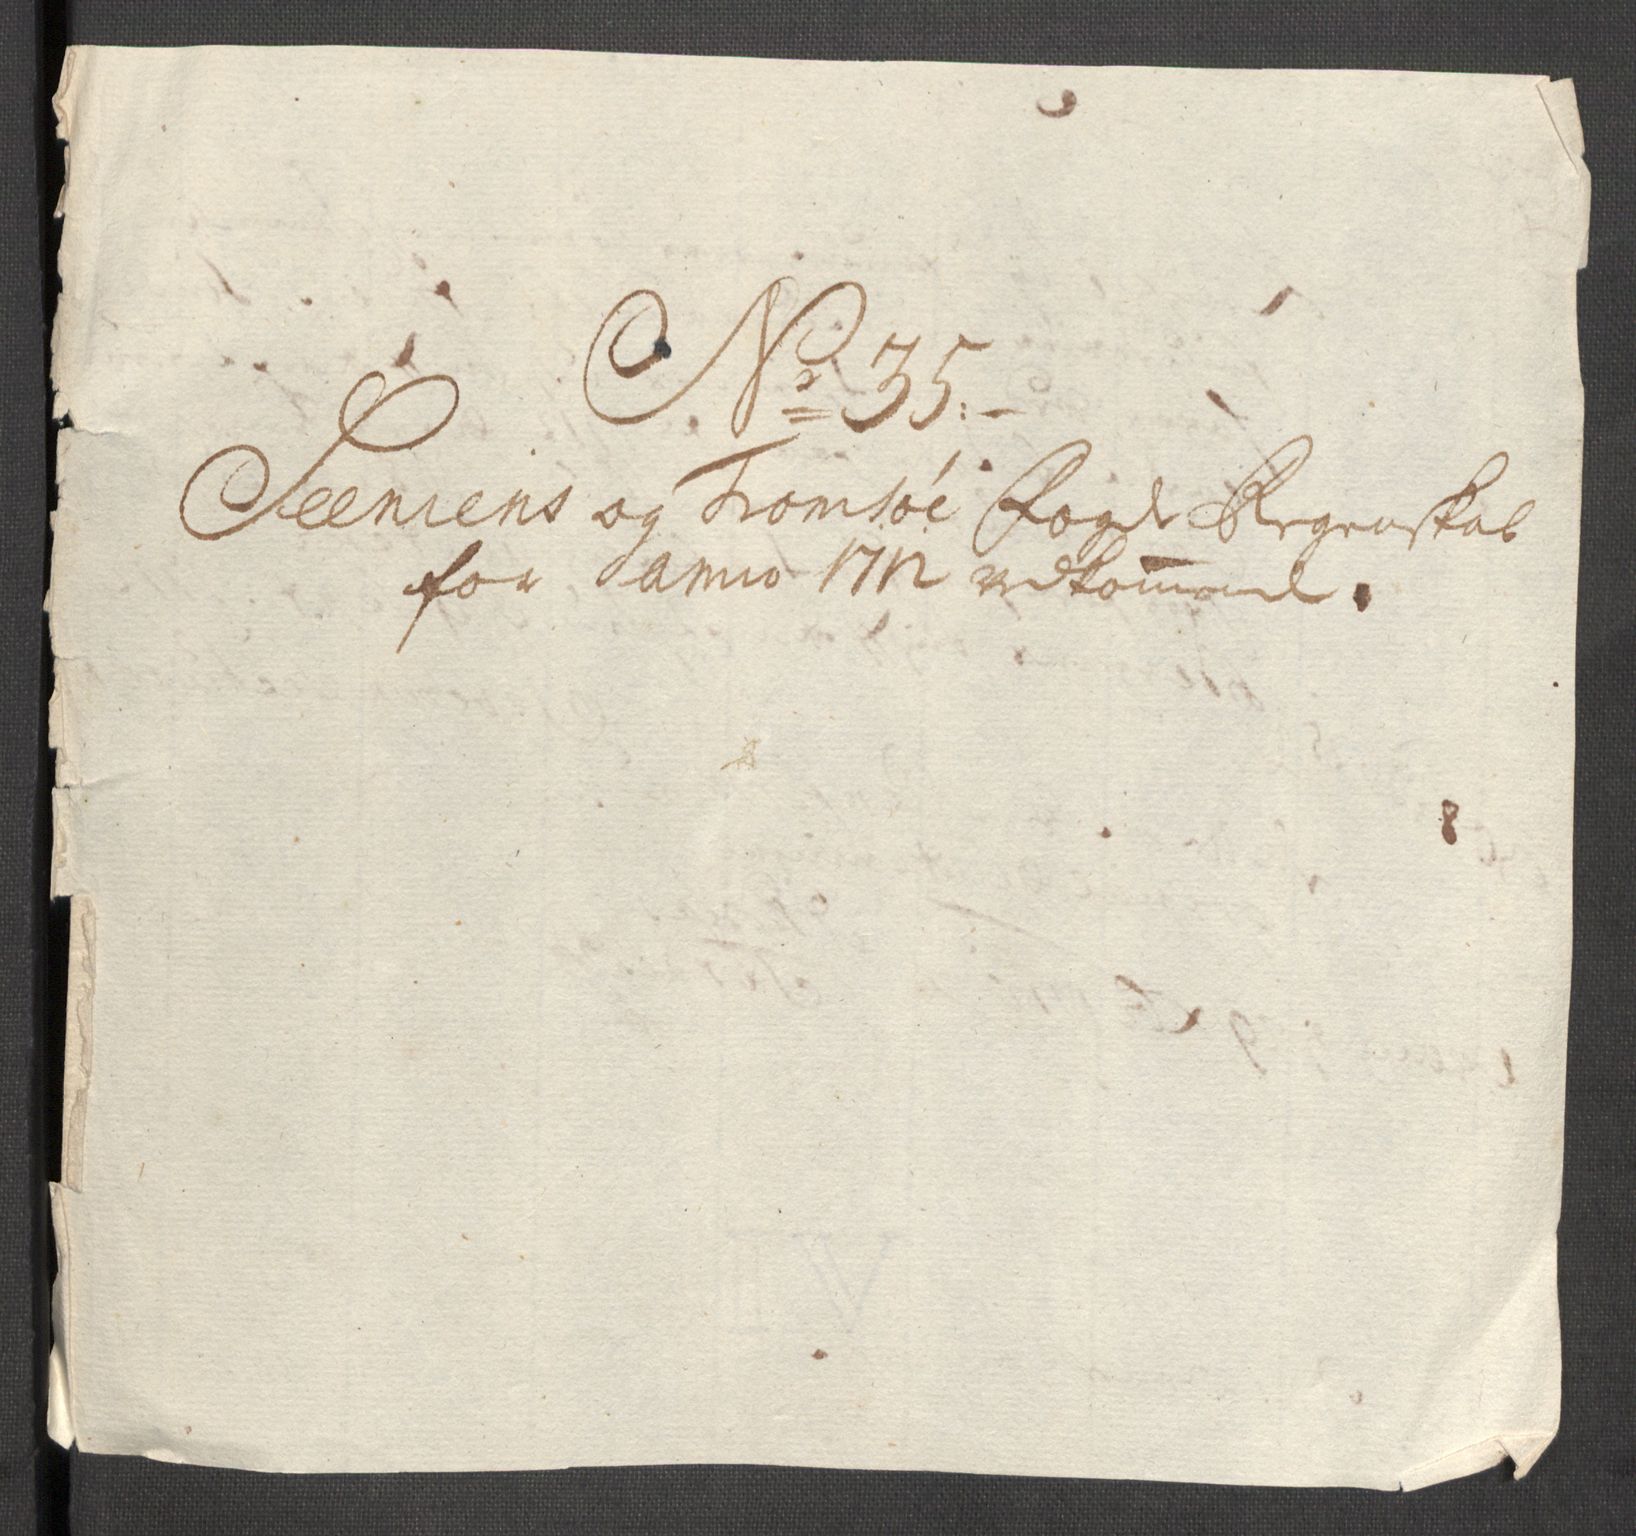 No 35:-
Seeniens og Tromsøe Fogd Regenskab
for anno 1712 vedkommend.